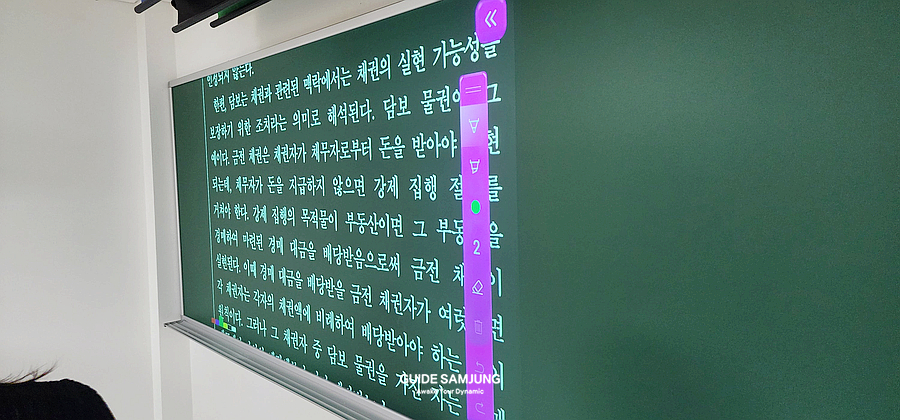 인정되지 않는다.
한편, 담보는 채권과 관련된 맥락에서는 채권의 실현 가능성을
보장하기 위한 조치라는 의미로 해석된다. 담보 물권이 그
예이다. 금전 채권은 채권자가 채무자로부터 돈을 받아야 현
되는데, 채무자가 돈을 지급하지 않으면 강제 집행 절 를
거쳐야 한다. 강제 집행의 목적물이 부동산이면 그 부동 을
경매하여 마련된 경매 대금을 배당받음으로써 금전 채 이
실현된다. 이때 경매 대금을 배당받을 금전 채권자가 여럿 면
각 채권자는 각자의 채권액에 비례하여 배당받아야 하는 이
원칙이다. 그러나 그 채권자 중 담보 물권을 가진 자는
2
GUIDE SAMJUNG
Awake Your Dynamic